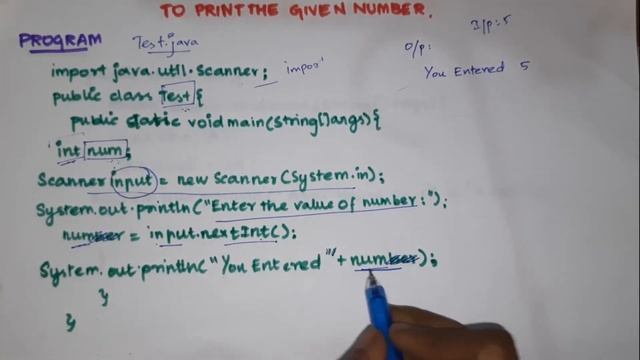 TO PRINT THE GIVEN NUMBER.
I/p: 5
PROGRAM Test.java
O/p:
import java.util.Scanner; impor
You Entered 5
public class Test {
public static void main(String[]args){
int num;
Scanner input = new Scanner(System.in);
System.out.println("Enter the value of number:");
num = input.nextInt();
System.out.println("You Entered " + num);
}
}